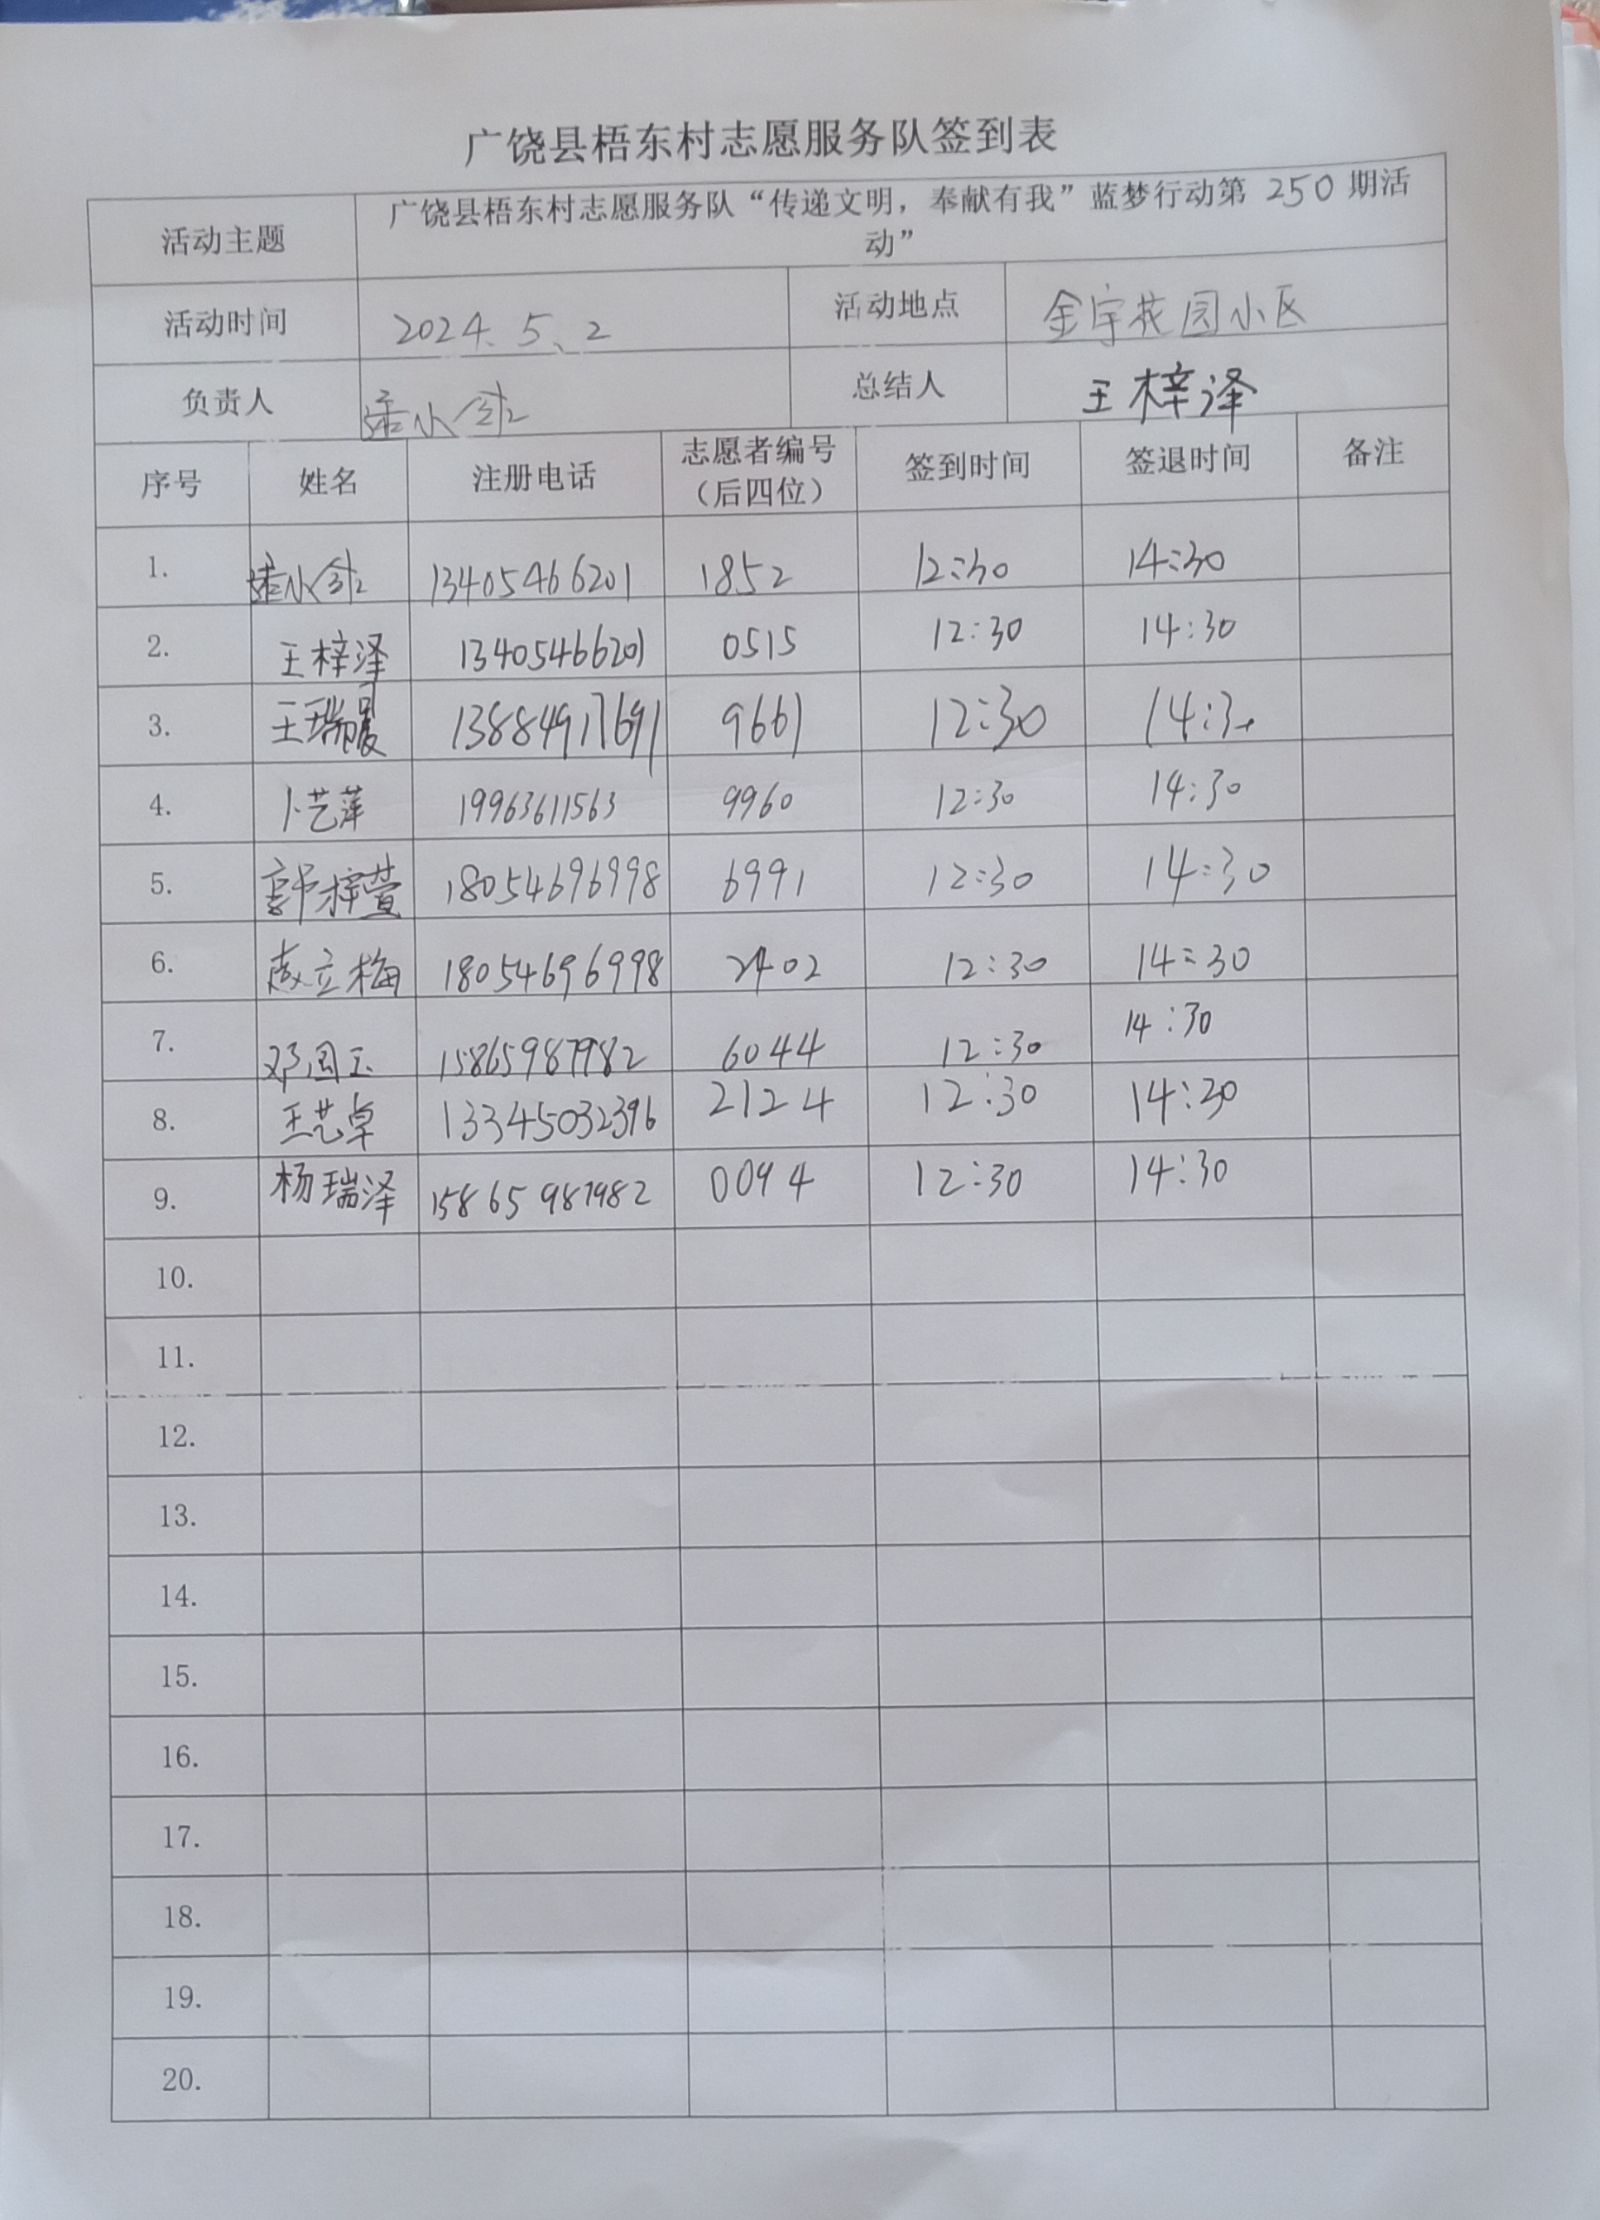 广饶县梧东村志愿服务队签到表
活动主题 广饶县梧东村志愿服务队“传递文明，奉献有我”蓝梦行动第 250 期活
动”
活动时间 2024、5、2 活动地点 金宇花园小区
负责人 总结人 王梓泽
序号 姓名 注册电话 志愿者编号 签到时间 签退时间 备注
（后四位）
1. 13405466201 1852 12:30 14:30
2. 王梓泽 13405466201 0515 12:30 14:30
3. 王瑞 13884917691 9661 12:30 14:30
4. 卜艺萍 19963611563 9960 12:30 14:30
5. 郭梓萱 18054696998 6991 12:30 14:30
6. 立梅 18054696998 2402 12:30 14:30
7. 邓国玉 15865987982 6044 12:30 14:30
8. 王艺卓 13345032396 2124 12:30 14:30
9. 杨瑞泽 15865987982 0094 12:30 14:30
10.
11.
12.
13.
14.
15.
16.
17.
18.
19.
20.